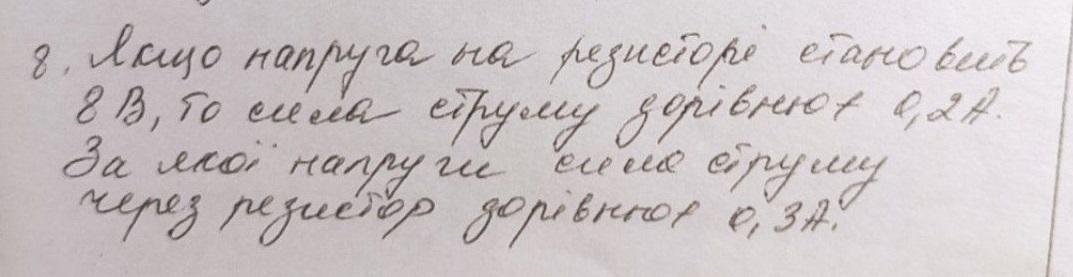 8. Якщо напруга на резисторі становить
8 В, то сила струму дорівнює 0,2 А.
За якої напруги сила струму
через резистор дорівнює 0,3 А.